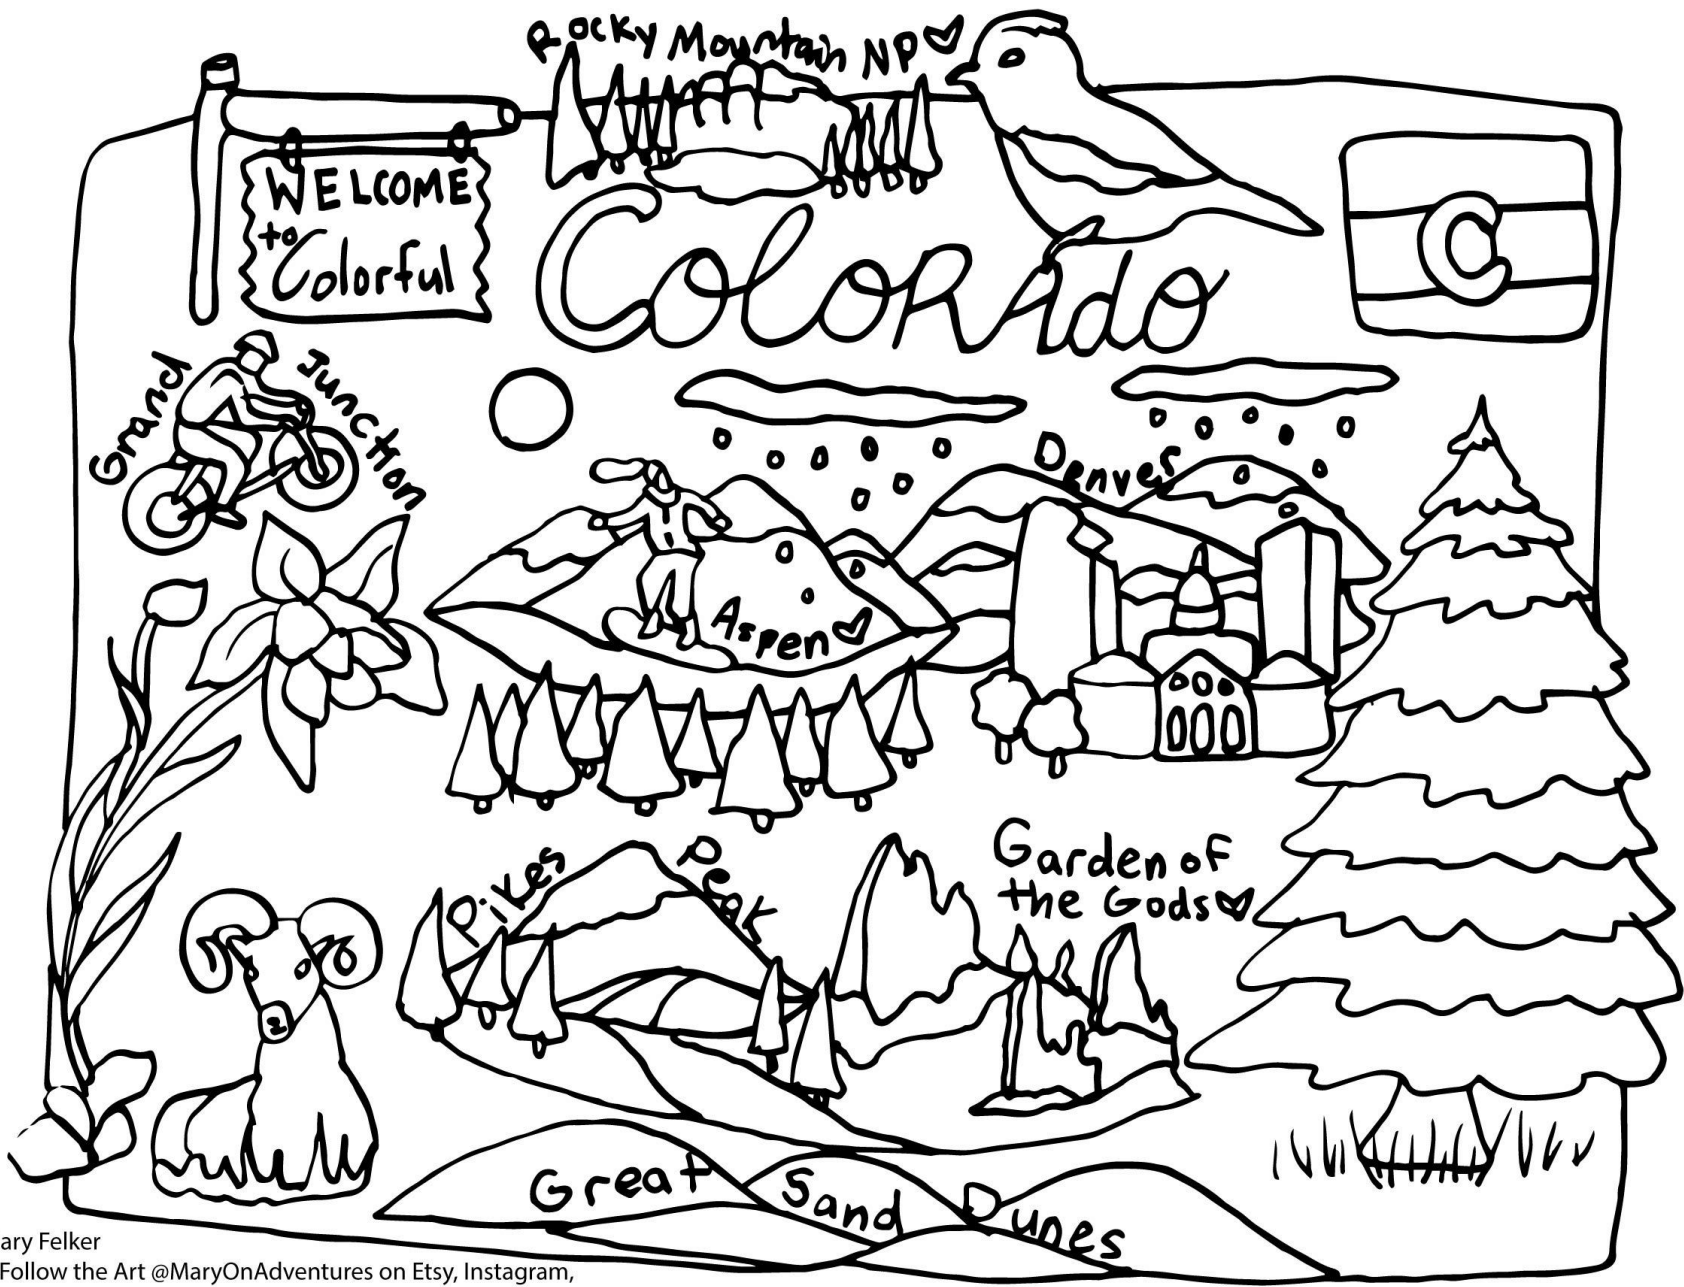 Rocky Mountain NP
WELCOME
to
Colorful
Colorado
C
Grand Junction
Denver
Aspen
Pikes Peak
Garden of
the Gods
Great Sand Dunes
ary Felker
Follow the Art @MaryOnAdventures on Etsy, Instagram,